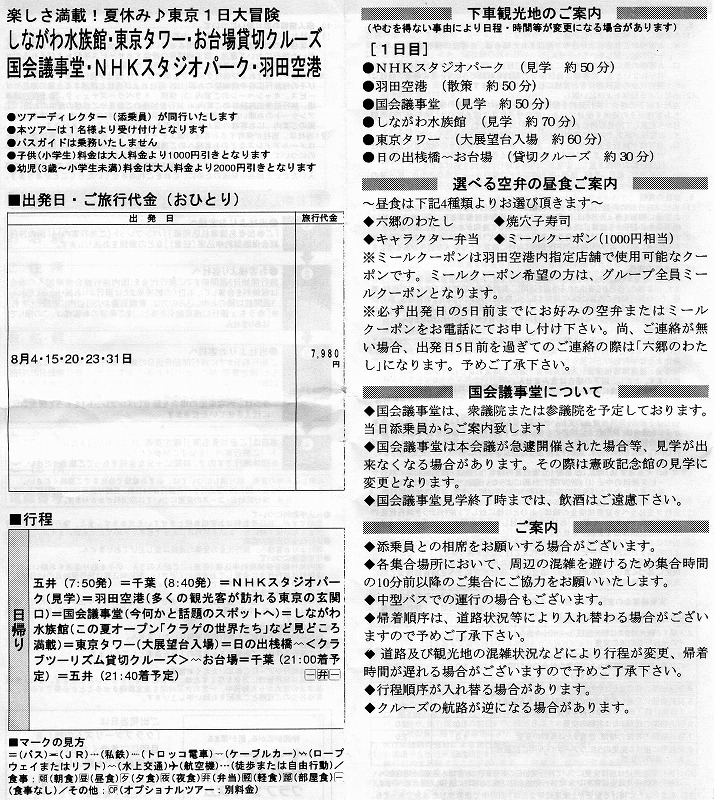 楽しさ満載！夏休み♪東京１日大冒険
しながわ水族館・東京タワー・お台場貸切クルーズ
国会議事堂・ＮＨＫスタジオパーク・羽田空港
●ツアーディレクター（添乗員）が同行いたします
●本ツアーは１名様より受け付けとなります
●バスガイドは乗務いたしません
●子供（小学生）料金は大人料金より1000円引きとなります
●幼児（3歳〜小学生未満）料金は大人料金より2000円引きとなります
■出発日・ご旅行代金（おひとり）
出発日 旅行代金
8月4・15・20・23・31日 7,980
円
■行程
日帰り
五井（7:50発）＝千葉（8:40発）＝ＮＨＫスタジオパー
ク（見学）＝羽田空港（多くの観光客が訪れる東京の玄関
口）＝国会議事堂（今何かと話題のスポットへ）＝しながわ
水族館（この夏オープン「クラゲの世界たち」など見どころ
満載）＝東京タワー（大展望台入場）＝日の出桟橋〜＜クラ
ブツーリズム貸切クルーズ＞〜お台場＝千葉（21:00着予
定）＝五井（21:40着予定） 一弁一
■マークの見方
＝（バス）（ＪＲ）…（私鉄）…（トロッコ電車）〜（ケーブルカー）（ロープ
ウェイまたはリフト）〜（水上交通）✈（航空機）…（徒歩または自由行動）／
食事：朝（朝食）昼（昼食）夕（夕食）夜（夜食）弁（弁当）軽（軽食）部（部屋食）一
（食事なし）／その他：OP（オプショナルツアー：別料金）
下車観光地のご案内
（やむを得ない事由により日程・時間等が変更になる場合があります）
［１日目］
●ＮＨＫスタジオパーク （見学 約50分）
●羽田空港 （散策 約50分）
●国会議事堂 （見学 約50分）
●しながわ水族館 （見学 約70分）
●東京タワー （大展望台入場 約60分）
●日の出桟橋〜お台場 （貸切クルーズ 約30分）
選べる空弁の昼食ご案内
〜昼食は下記4種類よりお選び頂きます〜
◆六郷のわたし ◆焼穴子寿司
◆キャラクター弁当 ◆ミールクーポン（1000円相当）
※ミールクーポンは羽田空港内指定店舗で使用可能なクー
ポンです。ミールクーポン希望の方は、グループ全員ミー
ルクーポンとなります。
※必ず出発日の5日前までにお好みの空弁またはミール
クーポンをお電話にてお申し付け下さい。尚、ご連絡が無
い場合、出発日5日前を過ぎてのご連絡の際は「六郷のわた
し」になります。予めご了承下さい。
国会議事堂について
◆国会議事堂は、衆議院または参議院を予定しております。
当日添乗員からご案内致します
◆国会議事堂は本会議が急遽開催された場合等、見学が出
来なくなる場合があります。その際は憲政記念館の見学に
変更となります。
◆国会議事堂見学終了時までは、飲酒はご遠慮下さい。
ご案内
◆添乗員との相席をお願いする場合がございます。
◆各集合場所において、周辺の混雑を避けるため集合時間
の10分前以降のご集合にご協力をお願いいたします。
◆中型バスでの運行の場合もございます。
◆帰着順序は、道路状況等により入れ替わる場合がござい
ますので予めご了承下さい。
◆ 道路及び観光地の混雑状況などにより行程が変更、帰着
時間が遅れる場合がございますので予めご了承下さい。
◆行程順序が入れ替る場合があります。
◆クルーズの航路が逆になる場合があります。